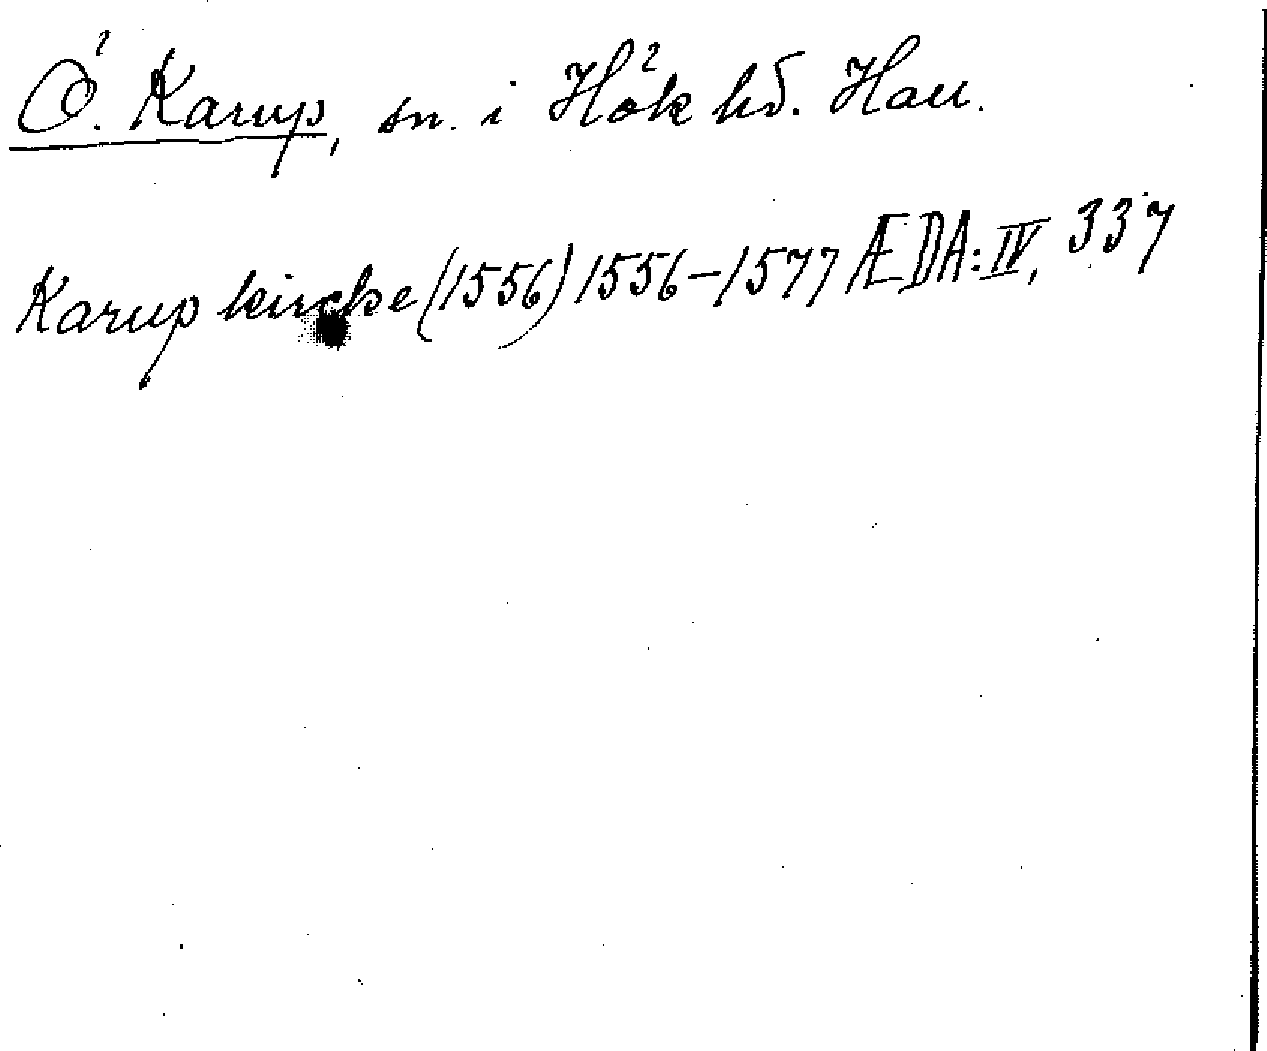 Ö. Karup, sn. i Hök hd. Hall.
Karup kircke (1556) 1556–1577 ÆDA: IV, 337